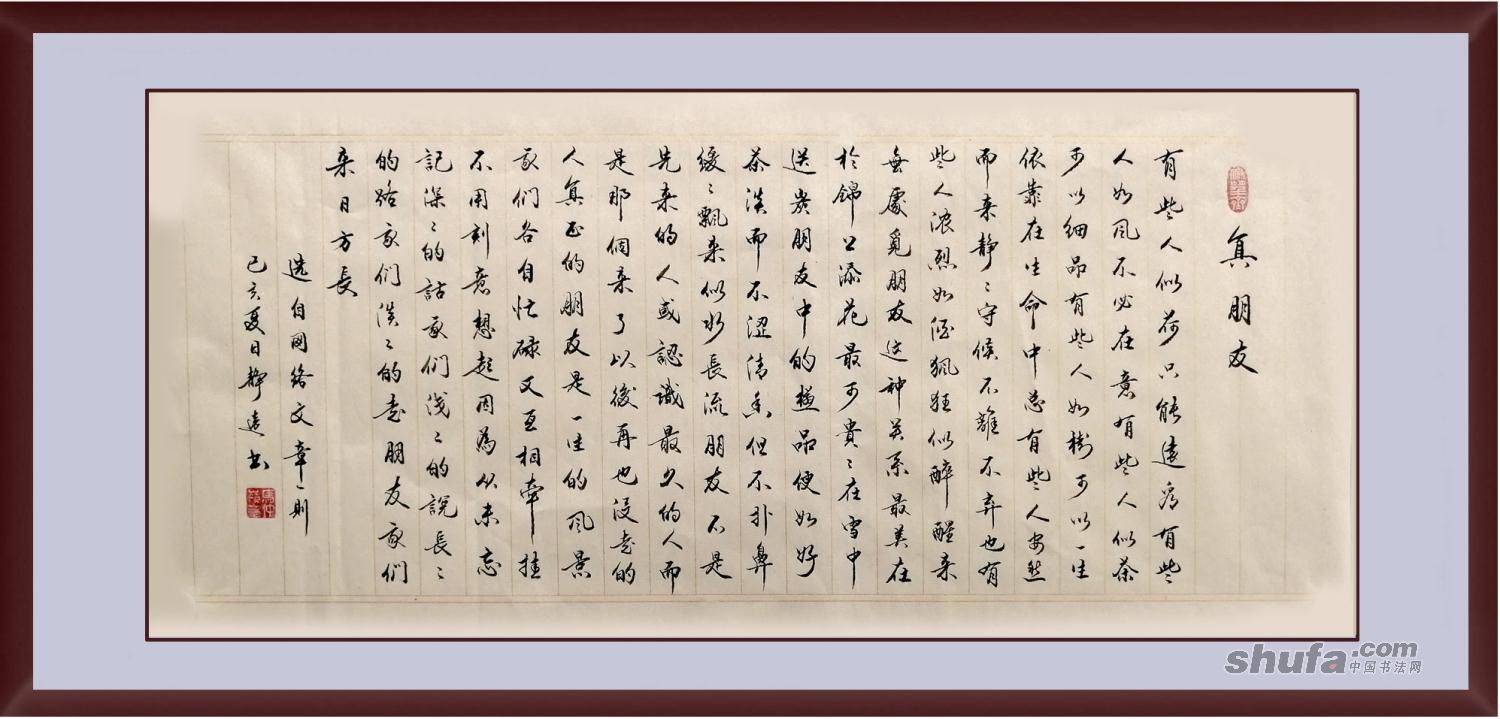 真朋友
有些人似荷只能遠看有些
人如风不必在意有些人似茶
可以细品有些人如樹可以一生
依靠在生命中总有些人安然
而来静〻守候不離不弃也有
些人浓烈如酒疯狂似醉醒来
無處覓朋友这种关系最美在
於錦上添花最可貴〻在雪中
送炭朋友中的極品便如好
茶淡而不涩清香但不扑鼻
缓〻飄来似水長流朋友不是
先来的人或認識最久的人而
是那個来了以後再也没走的
人真正的朋友是一生的风景
我们各自忙碌又互相牵挂
不用刻意想起因為从未忘
記深〻的話我们浅〻的說長〻
的路我们淡〻的走朋友我们
来日方長
选自网络文章一則
己亥夏日静遠书
shufa.com
中国书法网